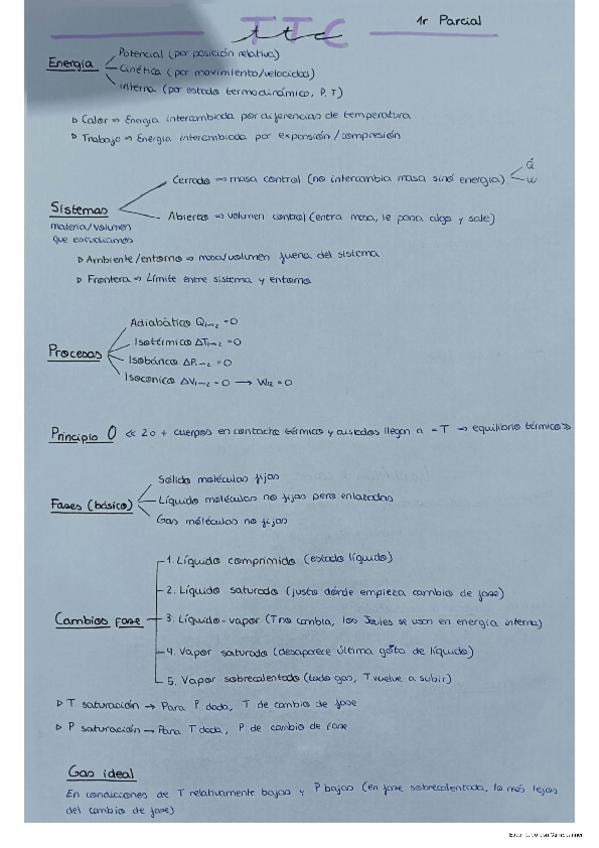 1r Parcial
TTC
ttc
Energía
Potencial (por posición relativa)
Cinética (por movimiento/velocidad)
interna (por estado termodinámico, P, T)
▷ Calor ⇝ Energía intercambiada por diferencias de temperatura
▷ Trabajo ⇝ Energía intercambiada por expansión / compresión
Sistemas
materia/volumen
que estudiamos
Cerrado ⇝ masa control (no intercambia masa sinó energía)
Q̇
W
Abiertos ⇝ volumen control (entra masa, le pasa algo y sale)
▷ Ambiente/entorno ⇝ masa/volumen fuera del sistema
▷ Frontera ⇝ Límite entre sistema y entorno
Procesos
Adiabàtico Q₁→₂ = 0
Isotérmico ΔT₁→₂ = 0
Isobárico ΔP₁→₂ = 0
Isocorico ΔV₁→₂ = 0 → W₁₂ = 0
Principio 0 « 2 o + cuerpos en contacto térmico y aislados llegan a = T ⇝ equilibrio térmico»
Fases (básico)
Sólido moléculas fijas
Líquido moléculas no fijas pero enlazadas
Gas moléculas no fijas
Cambios fase
1. Líquido comprimido (estado líquido)
2. Líquido saturado (justo dónde empieza cambio de fase)
3. Líquido-vapor (T no cambia, los Joules se usan en energía interna)
4. Vapor saturado (desaparece última gota de líquido)
5. Vapor sobrecalentado (todo gas, T vuelve a subir)
▷ T saturación → Para P dada, T de cambio de fase
▷ P saturación → Para T dada, P de cambio de fase
Gas ideal
En condiciones de T relativamente bajas y P bajas (en fase sobrecalentada, lo más lejos
del cambio de fase)